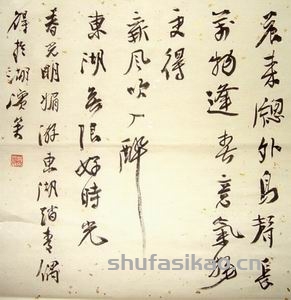 春来窗外鸟声长
万物逢春意气扬
更得
新风吹人醉
东湖无限好时光
春光明媚游东湖踏青偶
得于湖滨
shufasikao.cn